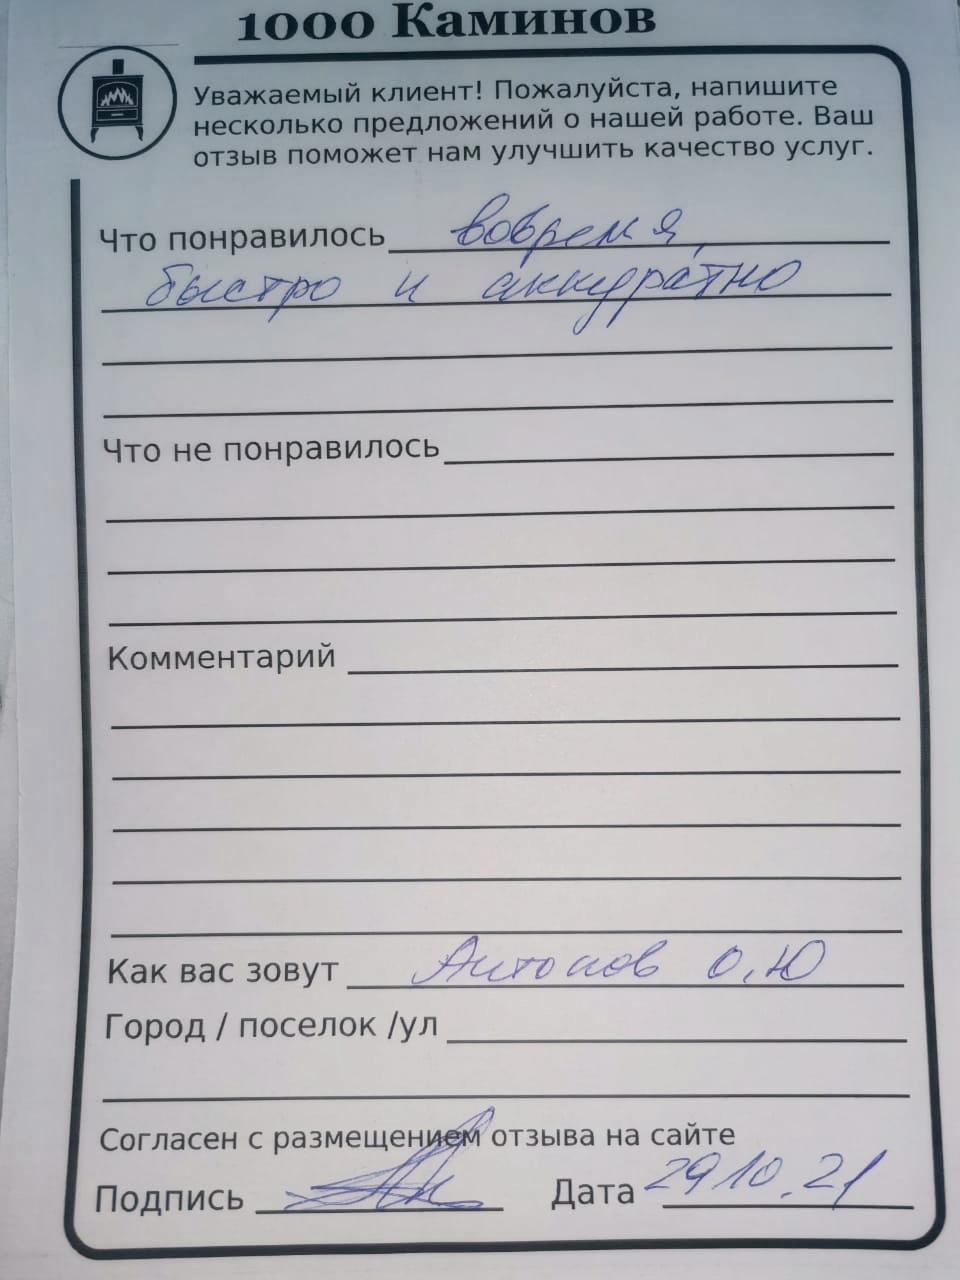 1000 Каминов
Уважаемый клиент! Пожалуйста, напишите
несколько предложений о нашей работе. Ваш
отзыв поможет нам улучшить качество услуг.
Что понравилось вовремя,
быстро и аккуратно
Что не понравилось
Комментарий
Как вас зовут Антонов О.Ю
Город / поселок /ул
Согласен с размещением отзыва на сайте
Подпись Дата 29 10.21